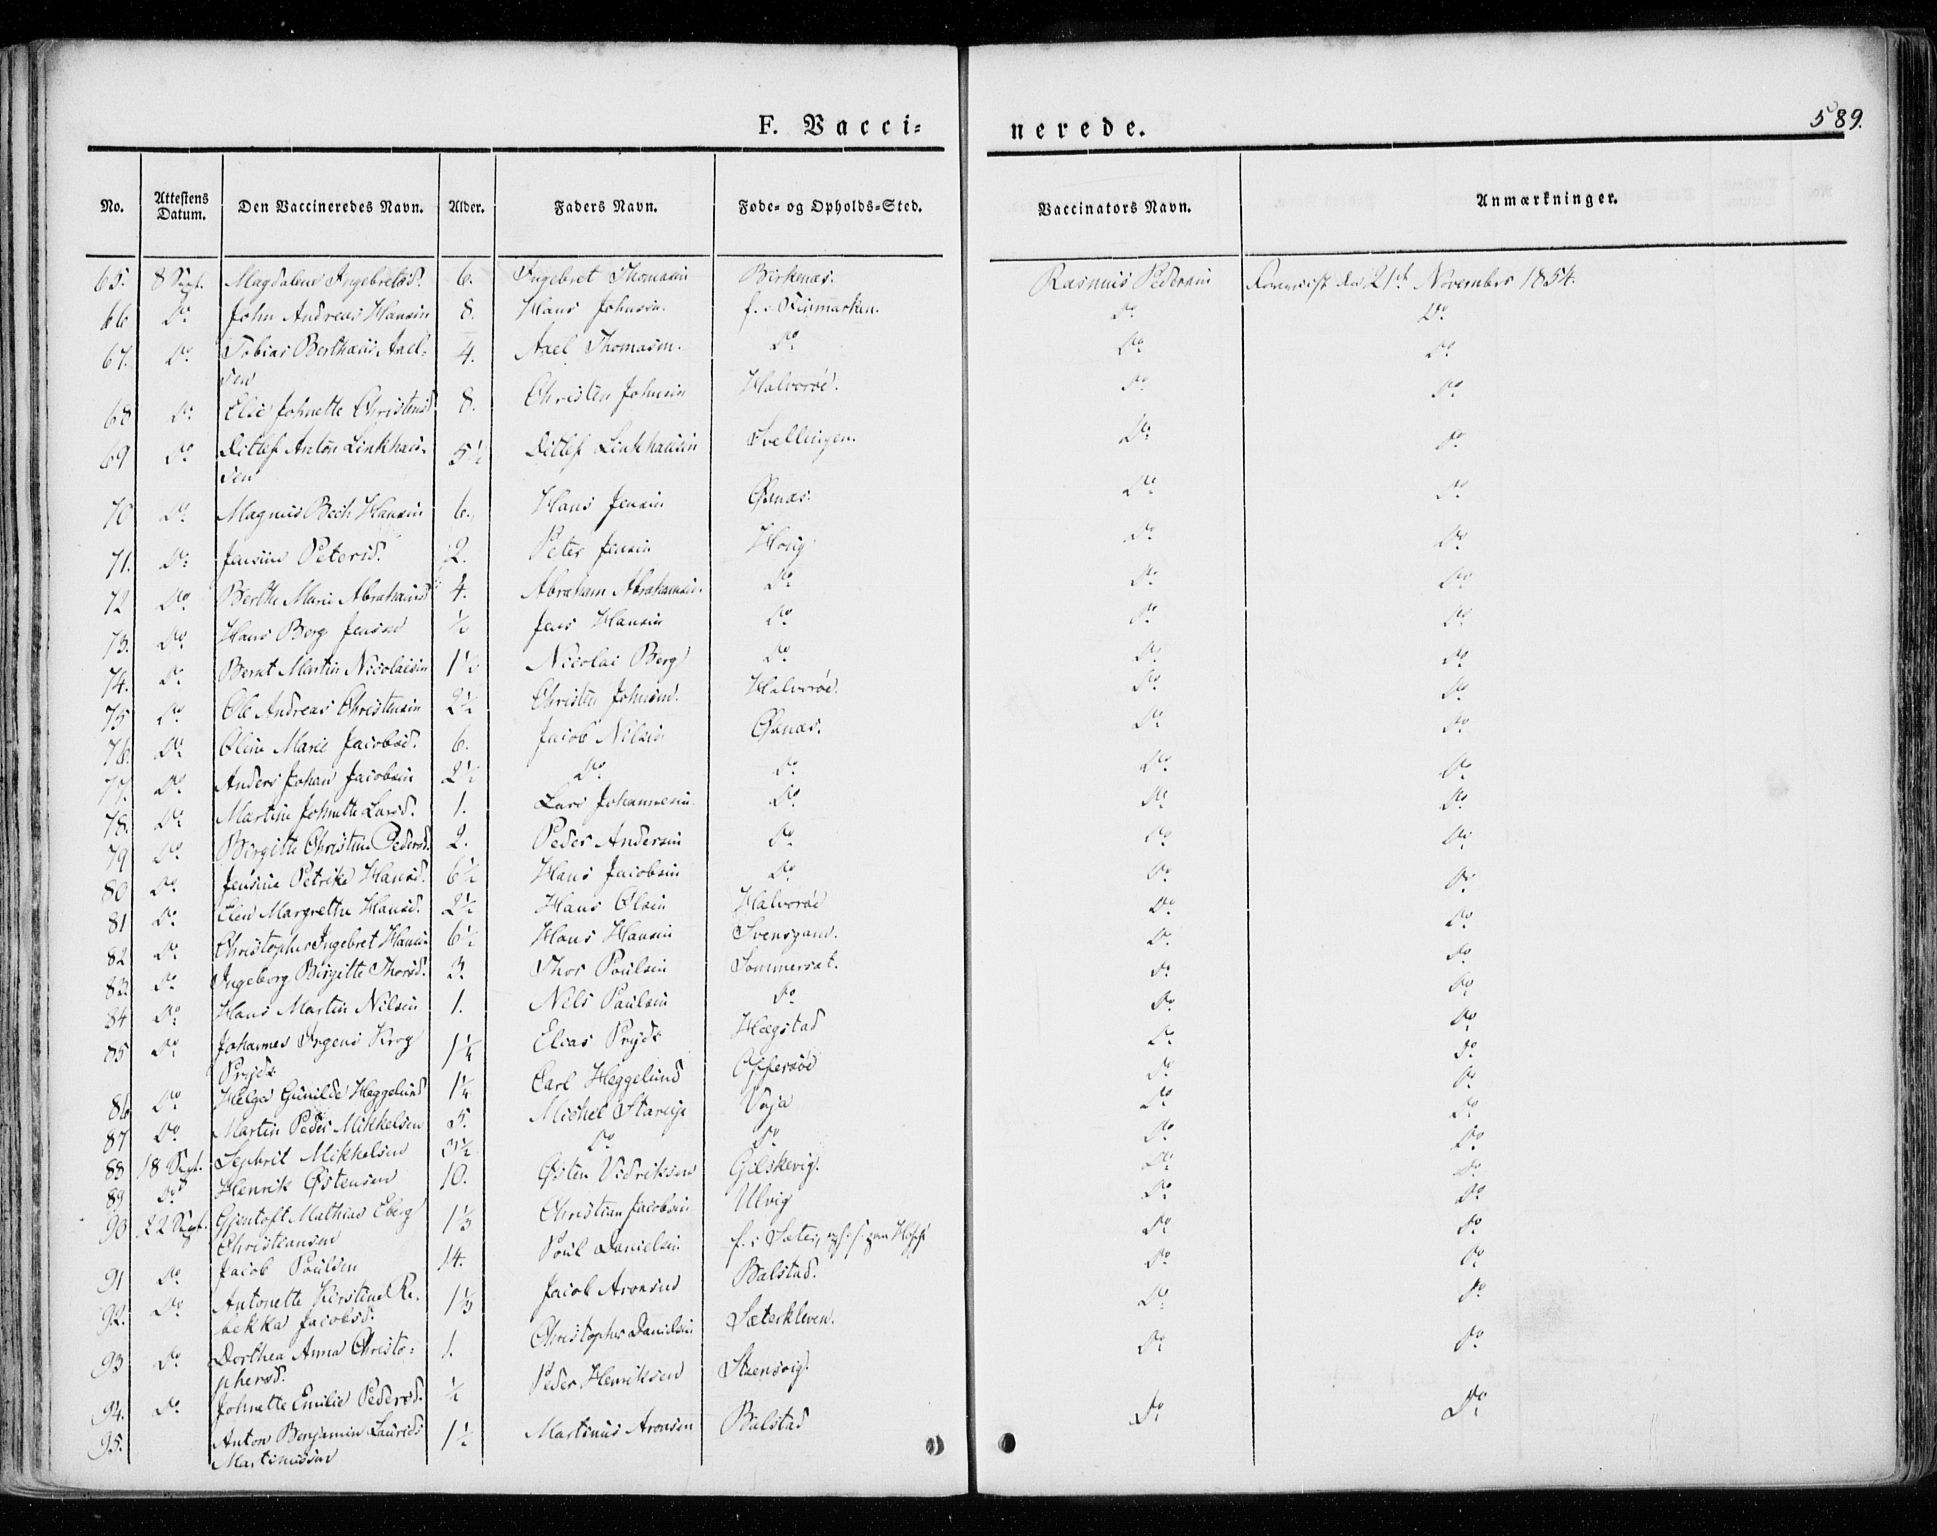 F. Vacci=
nerede.
589.
No. Attestens Datum. Den Vaccineredes Navn. Alder. Faders Navn. Føde- og Opholds-Sted. Vaccinators Navn. Anmærkninger.
65. 8 Sept. Magdalene Ingebretsd. 6. Ingebret Thomasen Birkenæs. Rasmus Pedersen den 21de November 1854.
66 Do John Andreas Hansen 8. Hans Johnsen. f. i Finmarken. Do Do
67. Do Tobias Berthæus Axel- 4. Axel Thomasen. Do Do Do
sen
68 Do Else Johnette Christensd. 8. Christen Johnsen Halvorøe. Do Do
69 Do Ditlef Anton Linkhau- 5½ Ditlef Linkhausen Svellingen. Do Do
sen
70 Do Magnus Bech Hansen 6. Hans Jensen Øxnæs. Do Do
71. Do Jensine Petersd. 2. Peter Jensen Hovig Do Do
72 Do Berthe Marie Abrahamsd. 4. Abraham Abrahamsen. Do Do Do
73. Do Hans Berg Jensen ½ Jens Hansen Do Do Do
74. Do Bernt Martin Nicolaisen 1½ Nicolai Berg Do Do Do
75 Do Ole Andreas Christensen 2½ Christen Johnsen. Halvorøe. Do Do
76. Do Oline Marie Jacobsd. 6. Jacob Nilsen Øxnæs. Do Do
77. Do Anders Johan Jacobsen 2½ Do Do Do Do
78. Do Martine Johnette Larsd. 1. Lars Johannesen Do Do Do
79 Do Birgitte Christine Pedersd. 2. Peder Andersen Do Do Do
80 Do Jensine Petrike Hansd. 6½ Hans Jacobsen Do Do Do
81 Do Elen Margrethe Hansd. 2½ Hans Olsen Halvorøe Do Do
82 Do Christopher Ingebret Hansen 6½ Hans Hansen Svensgam. Do Do
83. Do Ingeborg Birgitte Thorsd. 3. Thor Poulsen Sommersæt. Do Do
84 Do Hans Martin Nilsen 1. Nils Paulsen Do Do Do
85 Do Johannes Irgens Krog 1¼ Elias Prydz Hægstad Do Do
Prydz
86 Do Helga Gunilde Heggelund 1¼ Carl Heggelund Offersøe Do Do
87 Do Martin Peder Mikkelsen 5. Michel Vaja Do Do
88 18 Sept. Sephrit Mikkelsen 3½ Do Do Do Do
89 Do Henrik Østensen 10. Østen Vedriksen Gulskevig. Do Do
90 22 Sept. Gjentoft Mathias Eberg 1⅓ Christian Jacobsen Ulvig Do Do
Christiansen
91 Do Jacob Poulsen 14. Poul Danielsen f. i Sæter, Do Do
92. Do Antonette Kirstine Re- 1⅓ Jacob Aronsen Balstad. Do Do
bekka Jacobsd.
93 Do Dorthea Anna Christo- 1. Christopher Danielsen Sæterkleven. Do Do
phersd.
94. Do Johnette Emilie Pedersd. ½ Peder Henriksen Steensvig.
95. Anton Benjamin Laurids 1½ Martinus Aronsen Balstad Do Do
Martinussen